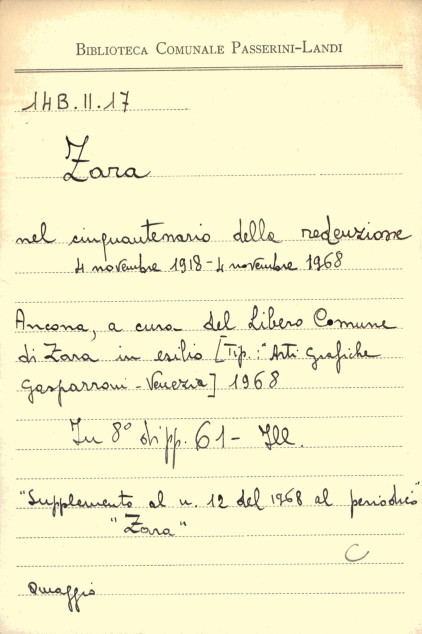 BIBLIOTECA COMUNALE PASSERINI-LANDI
14B.II.17
Zara
nel cinquantenario della redenzione
4 novembre 1918 - 4 novembre 1968
Ancona, a cura del Libero Comune
di Zara in esilio [Tip.: "Arti Grafiche
Gasparroni - Venezia] 1968
In 8° di pp. 61 - Ill.
"Supplemento al n. 12 del 1968 al periodico"
"Zara"
C
Omaggio